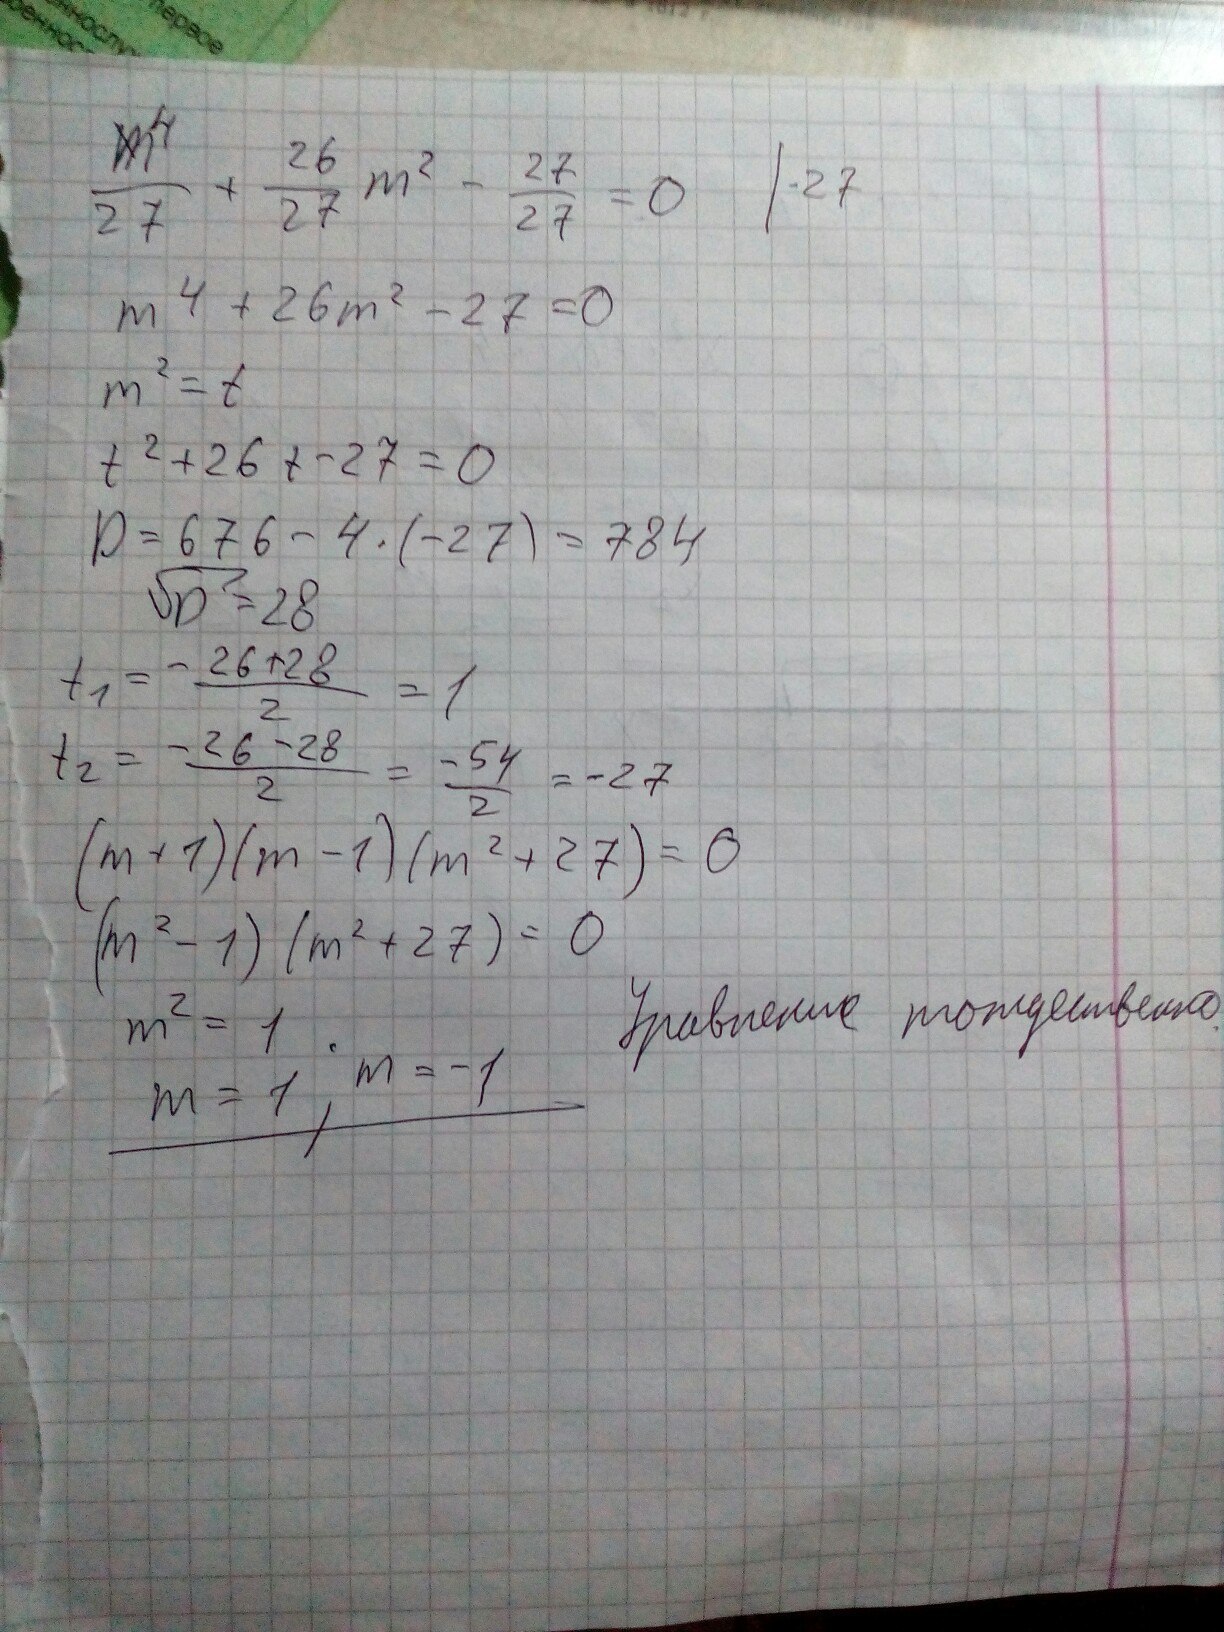 первое
m⁴/27 + 26/27 m² - 27/27 = 0 | ·27
m⁴ + 26m² - 27 = 0
m² = t
t² + 26t - 27 = 0
D = 676 - 4·(-27) = 784
√D = 28
t₁ = (-26+28)/2 = 1
t₂ = (-26-28)/2 = -54/2 = -27
(m+1)(m-1)(m²+27) = 0
(m²-1)(m²+27) = 0
m² = 1
Уравнение тождественно
m = 1; m = -1